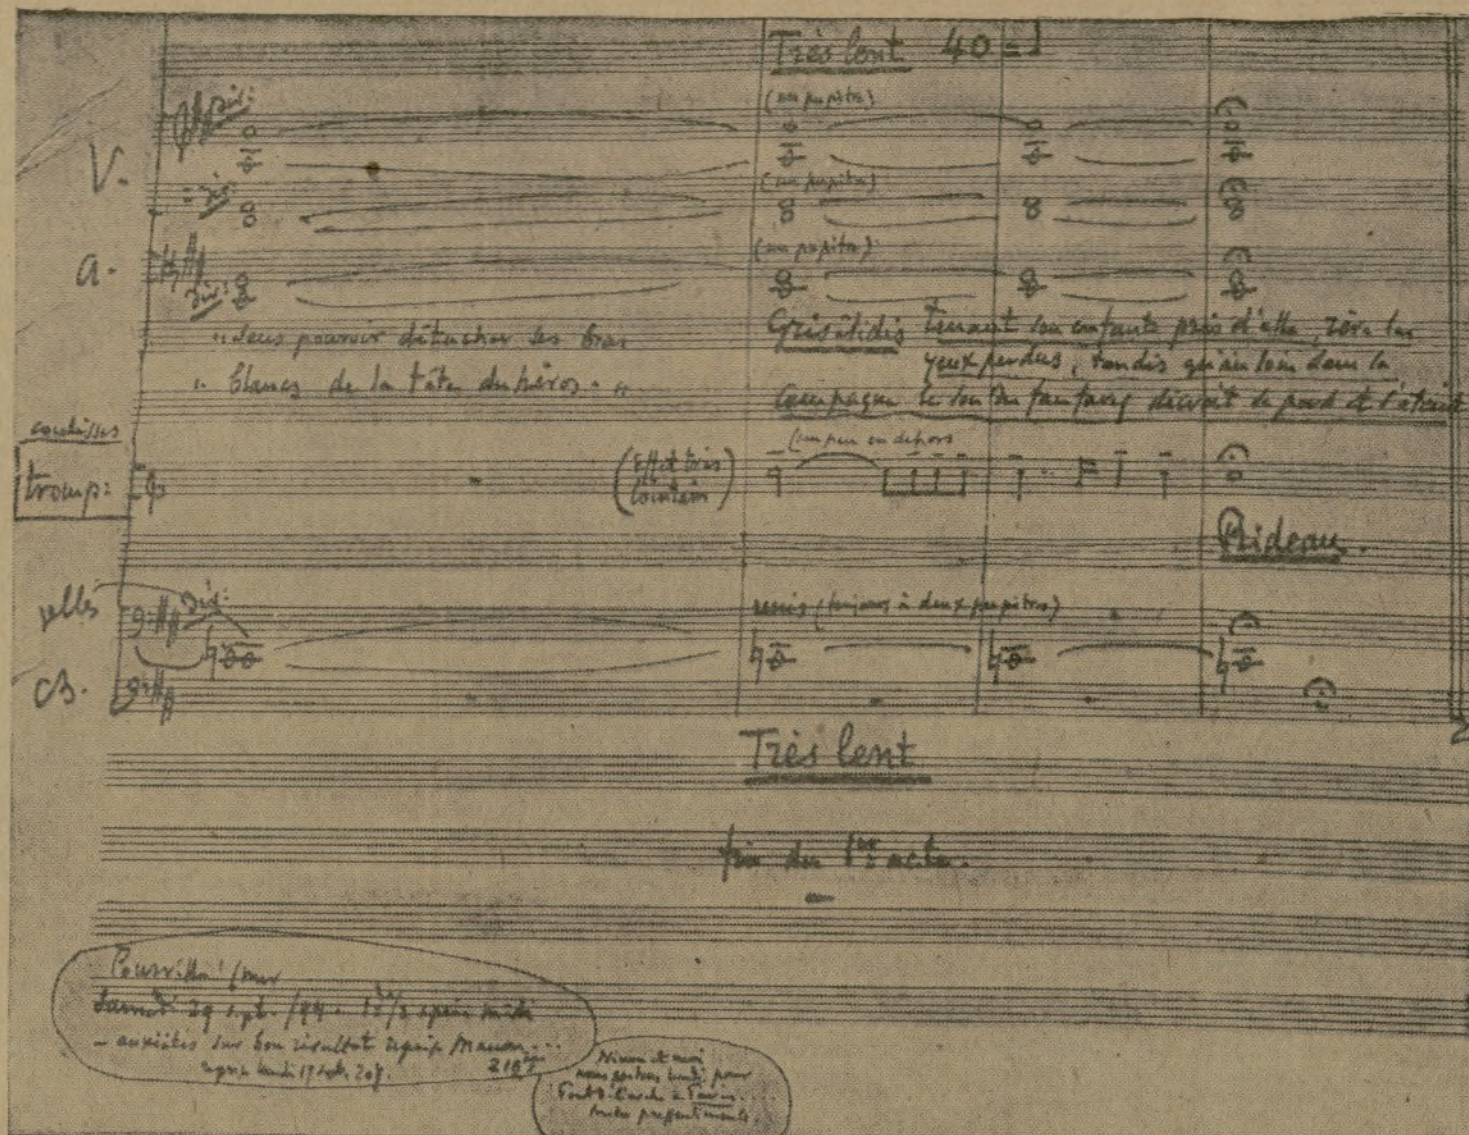 Très lent 40 =
div:
(un pupitre)
V.
div:
(un pupitre)
a.
div:
(un pupitre)
"sans pouvoir détacher ses bras
" blancs de la tête du héros. "
Grisélidis tenant son enfant près d'elle, rêve les
yeux perdus, tandis qu'au loin dans la
campagne le son des fanfares décroît se perd et s'éteint
coulisses
tromp:
(Effet très
lointain)
(un peu en dehors
Rideau.
velles
div:
unis (toujours à deux pupitres)
CB.
Très lent
fin du 1er acte.
Pourville s/mer
Samedi 29 sept. /94.
- anxiétés sur bon résultat reprise Manon....
reprise lundi 17 sept. 207.
Ninon et moi
nous partons lundi pour
Pont de l'Arche